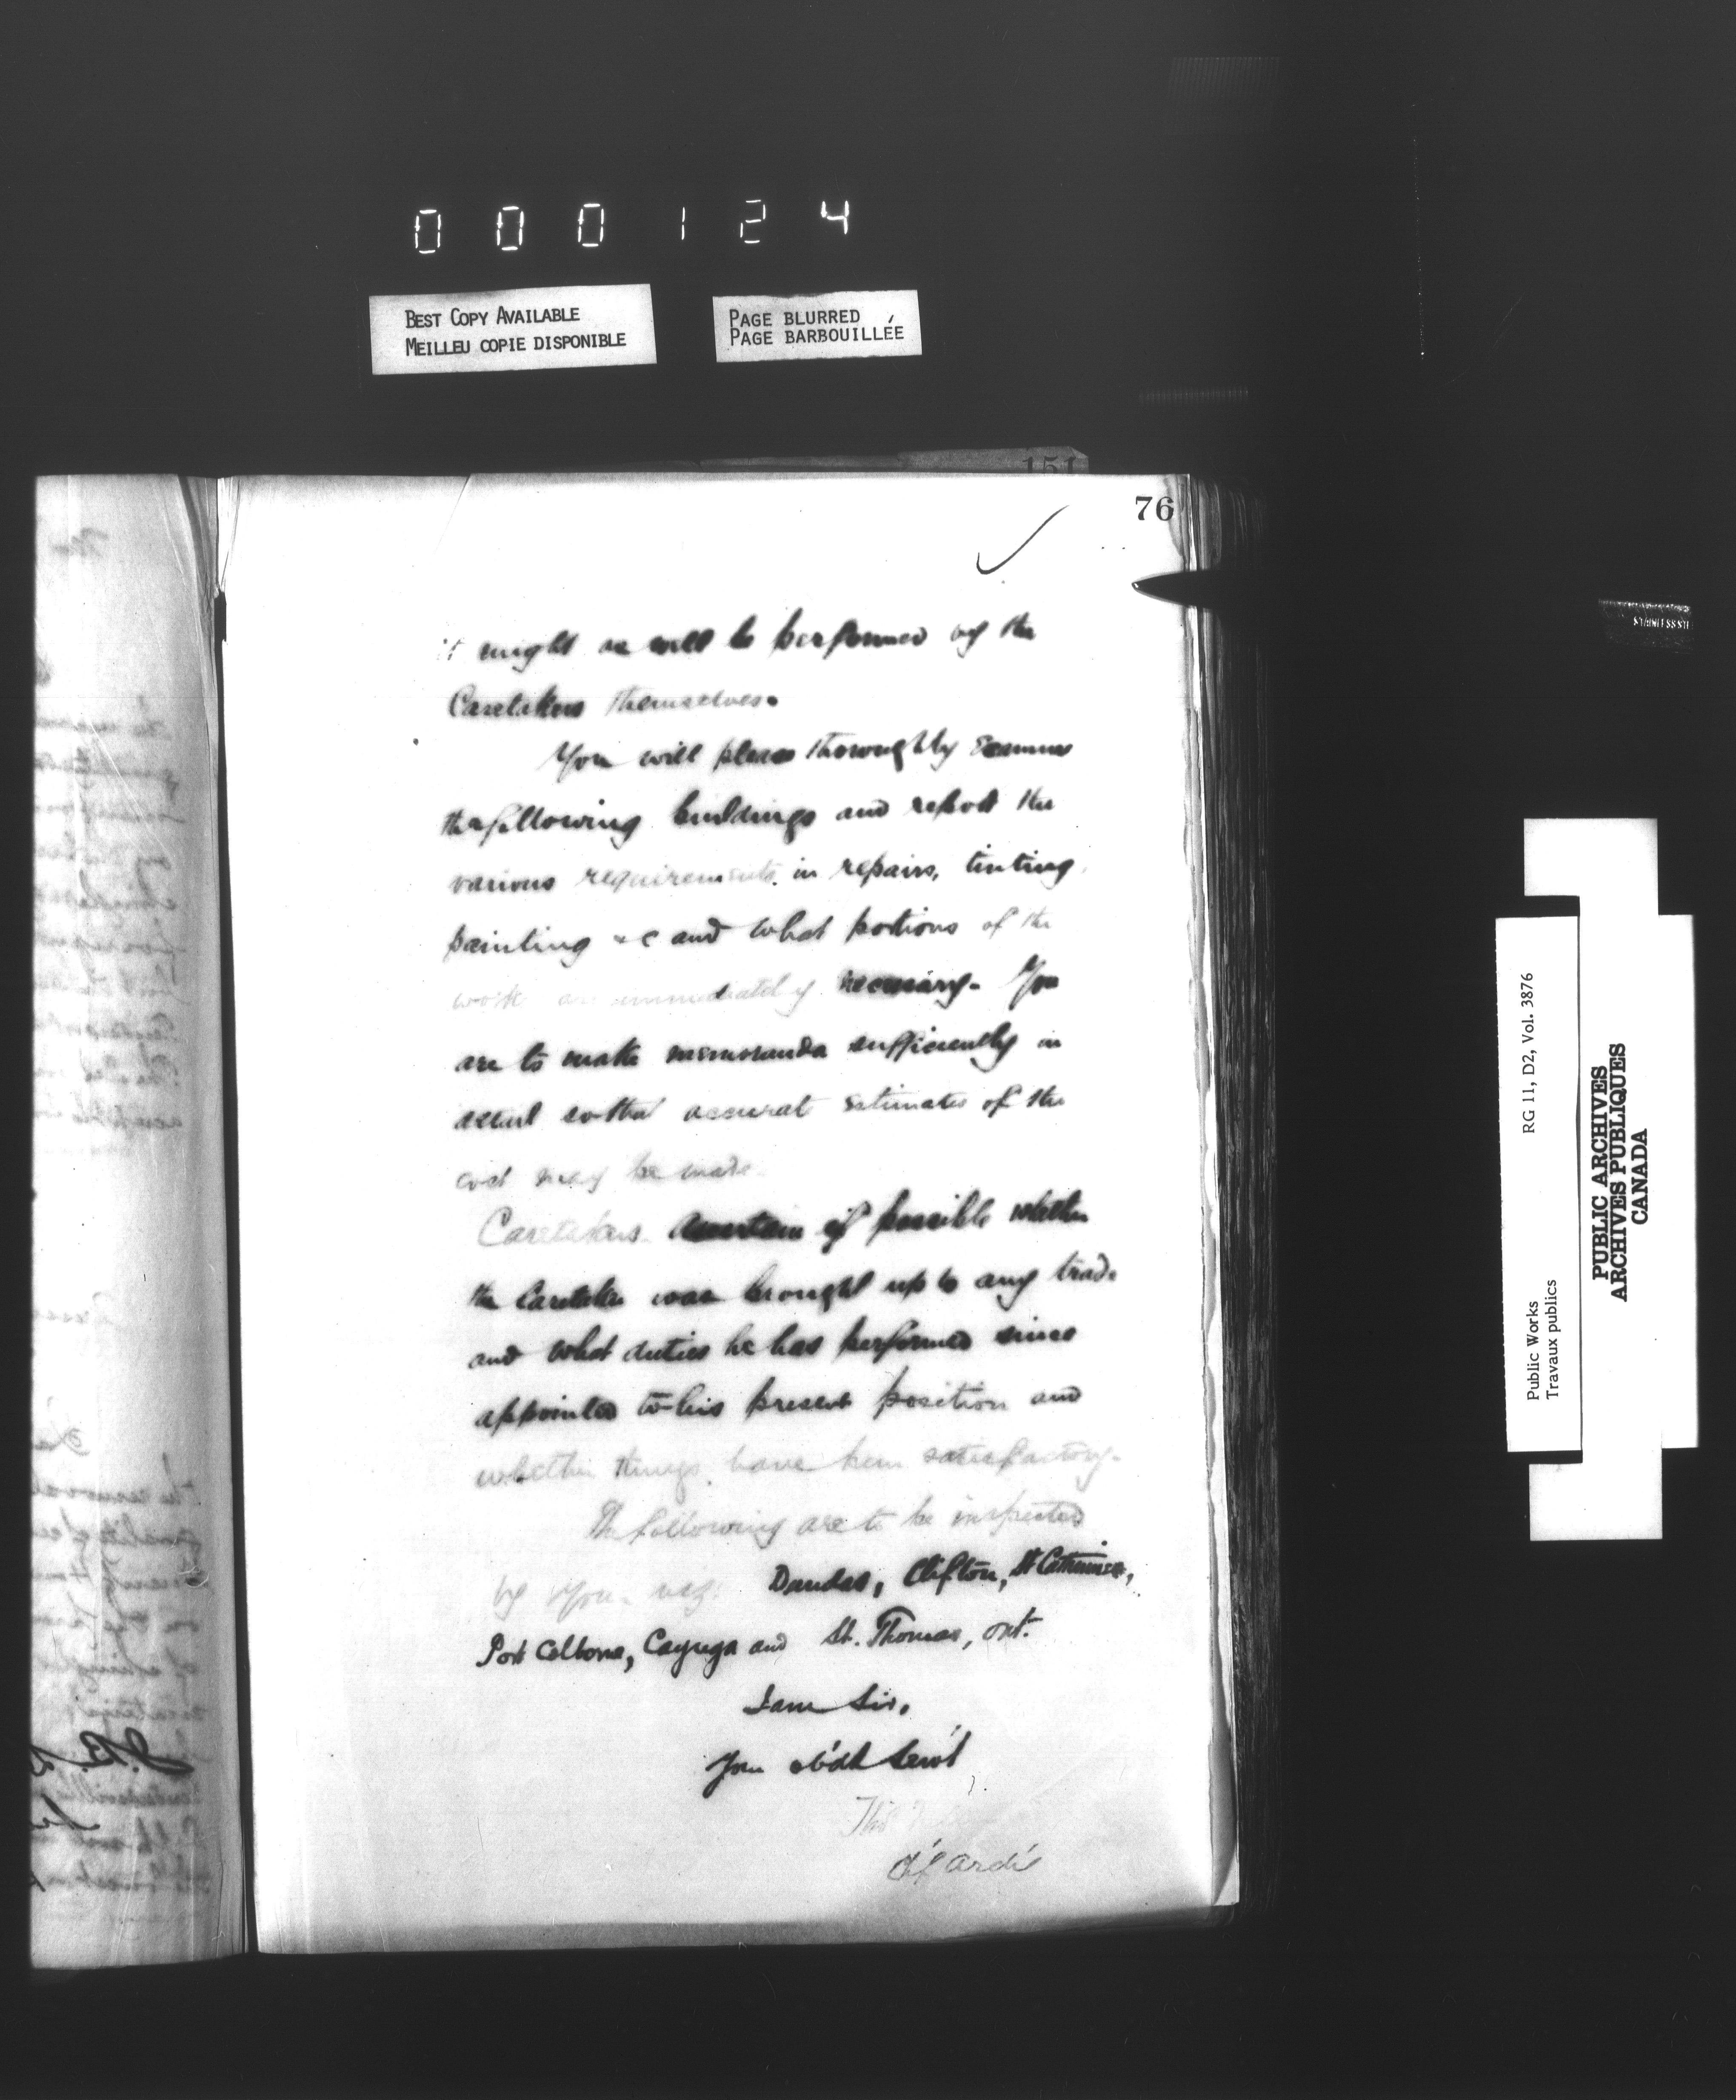 000124
BEST COPY AVAILABLE
MEILLEU COPIE DISPONIBLE
PAGE BLURRED
PAGE BARBOUILLÉE
151
76
it might as well be performed by the
Caretakers themselves.
You will please thoroughly examine
the following buildings and report the
various requirements in repairs, tinting,
painting &c and what portions of the
work are immediately necessary. You
are to make memoranda sufficiently in
detail so that accurate estimates of the
cost may be made
Caretakers. Ascertain if possible whether
the Caretaker was brought up to any trade
and what duties he has performed since
appointed to his present position and
whether things have been satisfactory.
The following are to be inspected
by you. viz: Dundas, Clifton, St Catharines,
Port Colborne, Cayuga and St. Thomas, Ont.
I am Sir,
Your ob'dt Serv't
Ch'f Arch't
RG 11, D2, Vol. 3876
Public Works
Travaux publics
PUBLIC ARCHIVES
ARCHIVES PUBLIQUES
CANADA